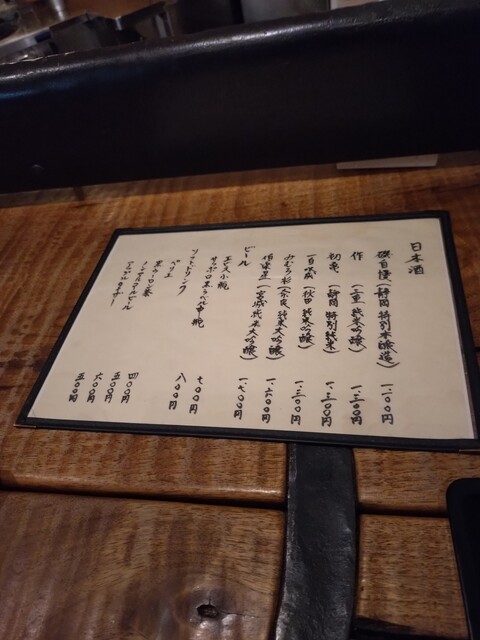 日本酒
磯自慢（静岡 特別本醸造） 一一〇〇円
作（三重 純米吟醸） 一三〇〇円
初亀（静岡 特別純米） 一二〇〇円
一白水成（秋田 純米吟醸） 一三〇〇円
みむろ杉（奈良 純米大吟醸） 一六〇〇円
伯楽星（宮城 純米大吟醸） 一七〇〇円
ビール
ヱビス小瓶 七〇〇円
サッポロ黒ラベル中瓶 八〇〇円
ソフトドリンク
ペリエ 四〇〇円
黒ウーロン茶 五〇〇円
ノンアルコールビール 六〇〇円
五〇〇円